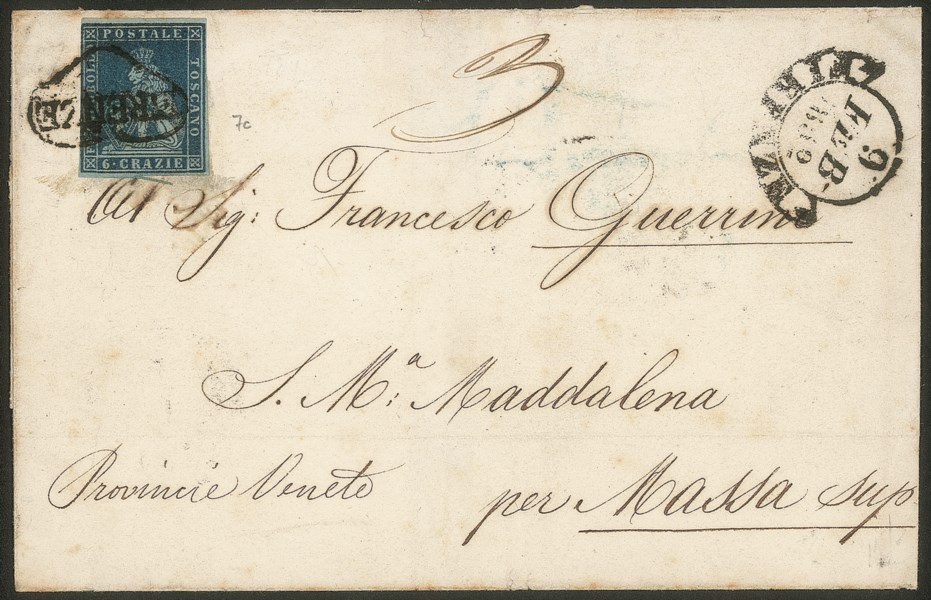 POSTALE
FRANCOBOLLO
TOSCANO
6·CRAZIE
FIRENZE
7c
3
FIRENZE
9
FEB
Al Sig: Francesco Guerrini
S. Mª: Maddalena
Provincie Venete
per Massa sup